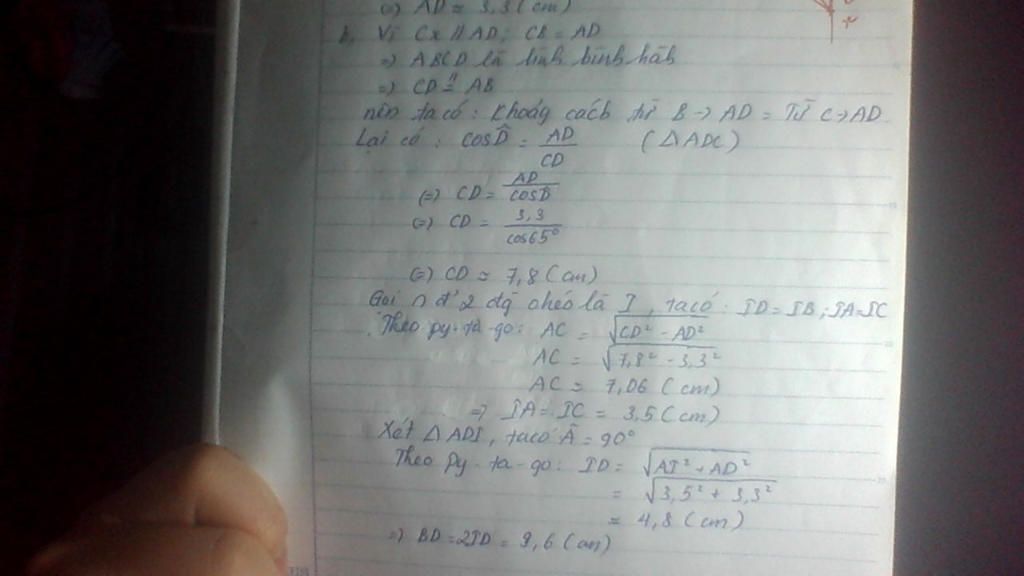 (=) AD ≈ 3,3 (cm)
b, Vì Cx // AD; CB = AD
=> ABCD là hình bình hành
=> CD // = AB
nên ta có: Khoảng cách từ B -> AD = Từ C -> AD
Lại có: cosD̂ = AD/CD (ΔADC)
(=) CD = AD/cosD̂
(=) CD = 3,3/cos65°
(=) CD ≈ 7,8 (cm)
Gọi ∩ đ' 2 đg chéo là I, ta có: ID = IB; IA = IC
Theo py-ta-go: AC = √(CD² - AD²)
AC = √(7,8² - 3,3²)
AC ≈ 7,06 (cm)
=> IA = IC = 3,5 (cm)
Xét ΔADI, ta có Â = 90°
Theo Py-ta-go: ID = √(AI² + AD²)
= √(3,5² + 3,3²)
≈ 4,8 (cm)
=> BD = 2ID = 9,6 (cm)